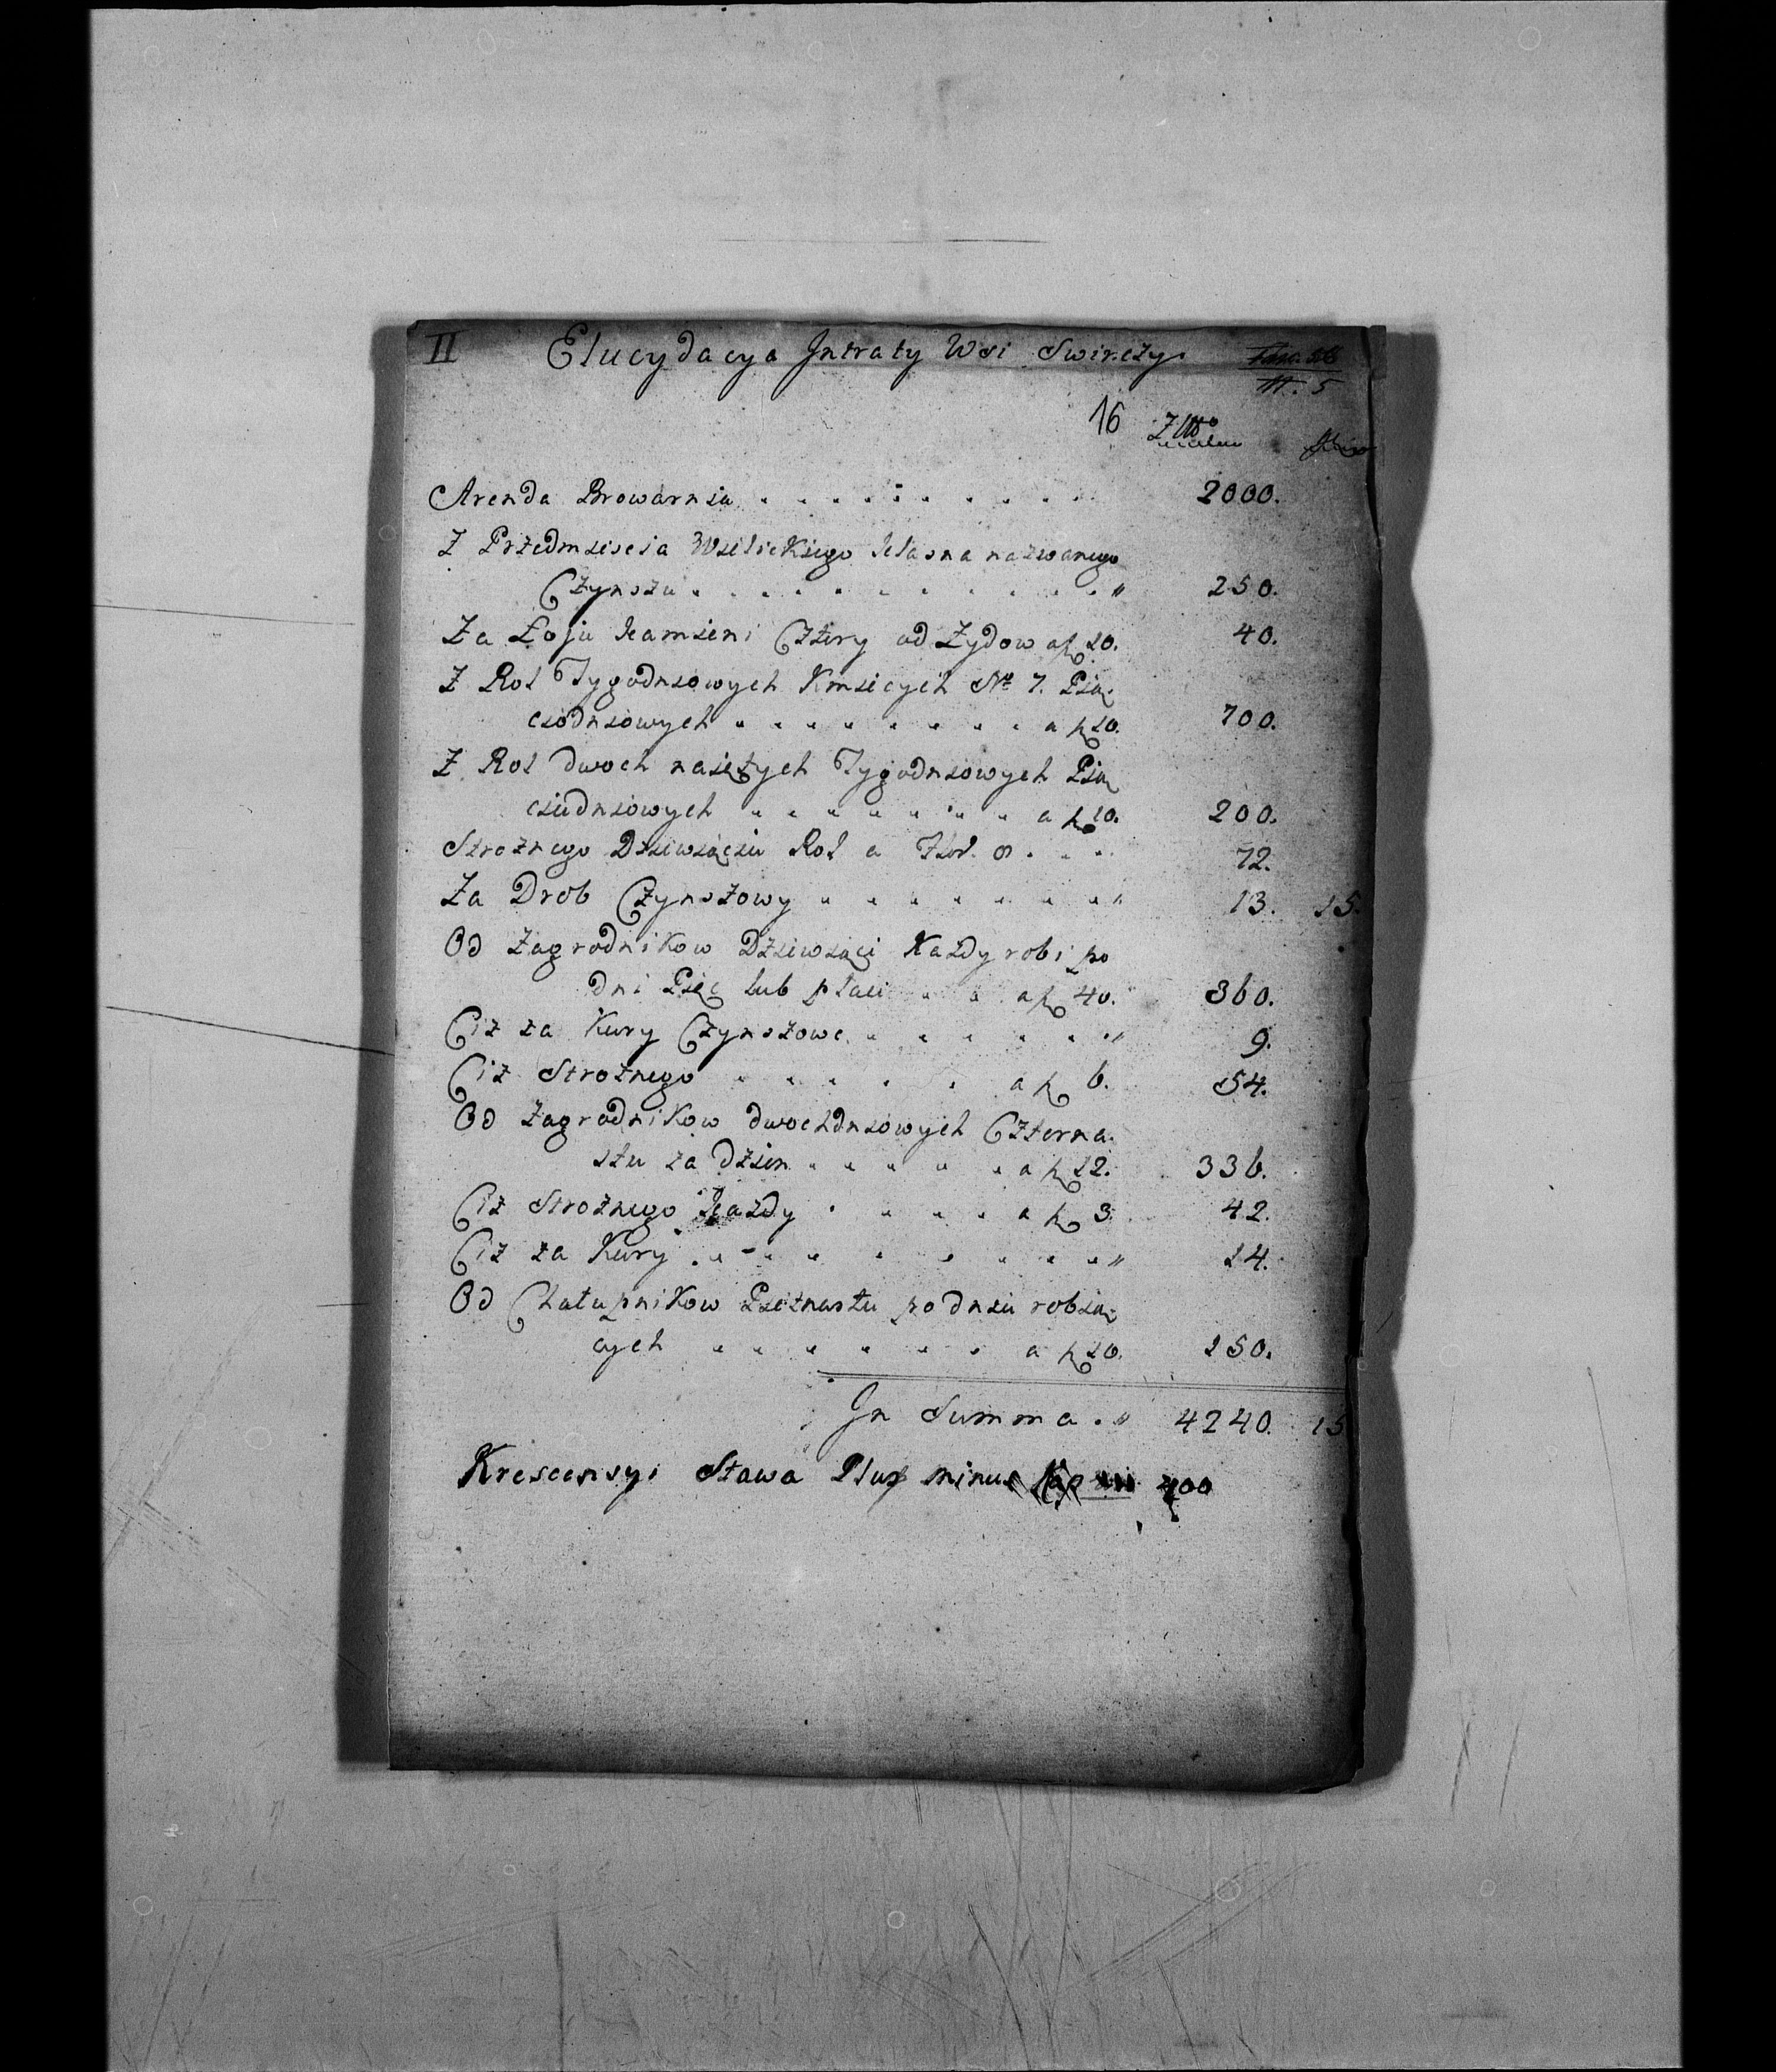 II Elucydacya Jntraty Wsi Swirczy.
III. 5
16 Złłº
Arenda Browarnia . . . . . . . . . . 2000.
Z Przedmiescia Wislickiego Krasna nazwanego
Czynszu . . . . . . . . . . . " 250.
Za Łoju kamieni Cztery od Zydow a fl 10. 40.
Z Rol Tygodniowych Kmiecych Nº 7. Pia,
ciodniowych . . . . . . . . a fl 10. 700.
Z Rol dwoch naiętych Tygodniowych Pią
ciudniowych . . . . . . . . a fl 10. 200.
Stroznego Dziewiąciu Rol a 8 . . . 72.
Za Drob Czynszowy . . . . . . . " 13. 15.
Od Zagrodnikow Dziewiąci Kazdy robi po
dni Pięc lub płaci . . a fl 40. 360.
Ciz za Kury Czynszowe . . . . . . " 9.
Ciz Stroznego . . . . . a fl 6. 54.
Od Zagrodnikow dwochdniowych Czterna
stu za dzien . . . . . a fl 12. 336.
Ciz Stroznego kazdy . . . . a fl 3. 42.
Ciz za Kury . . . . . . . . " 14.
Od Chałupnikow Pietnastu po dniu robią,
cych . . . . . . a fl 10. 150.
Jn Summa . " 4240. 15
Krescensyi Stawa Plus minus 400